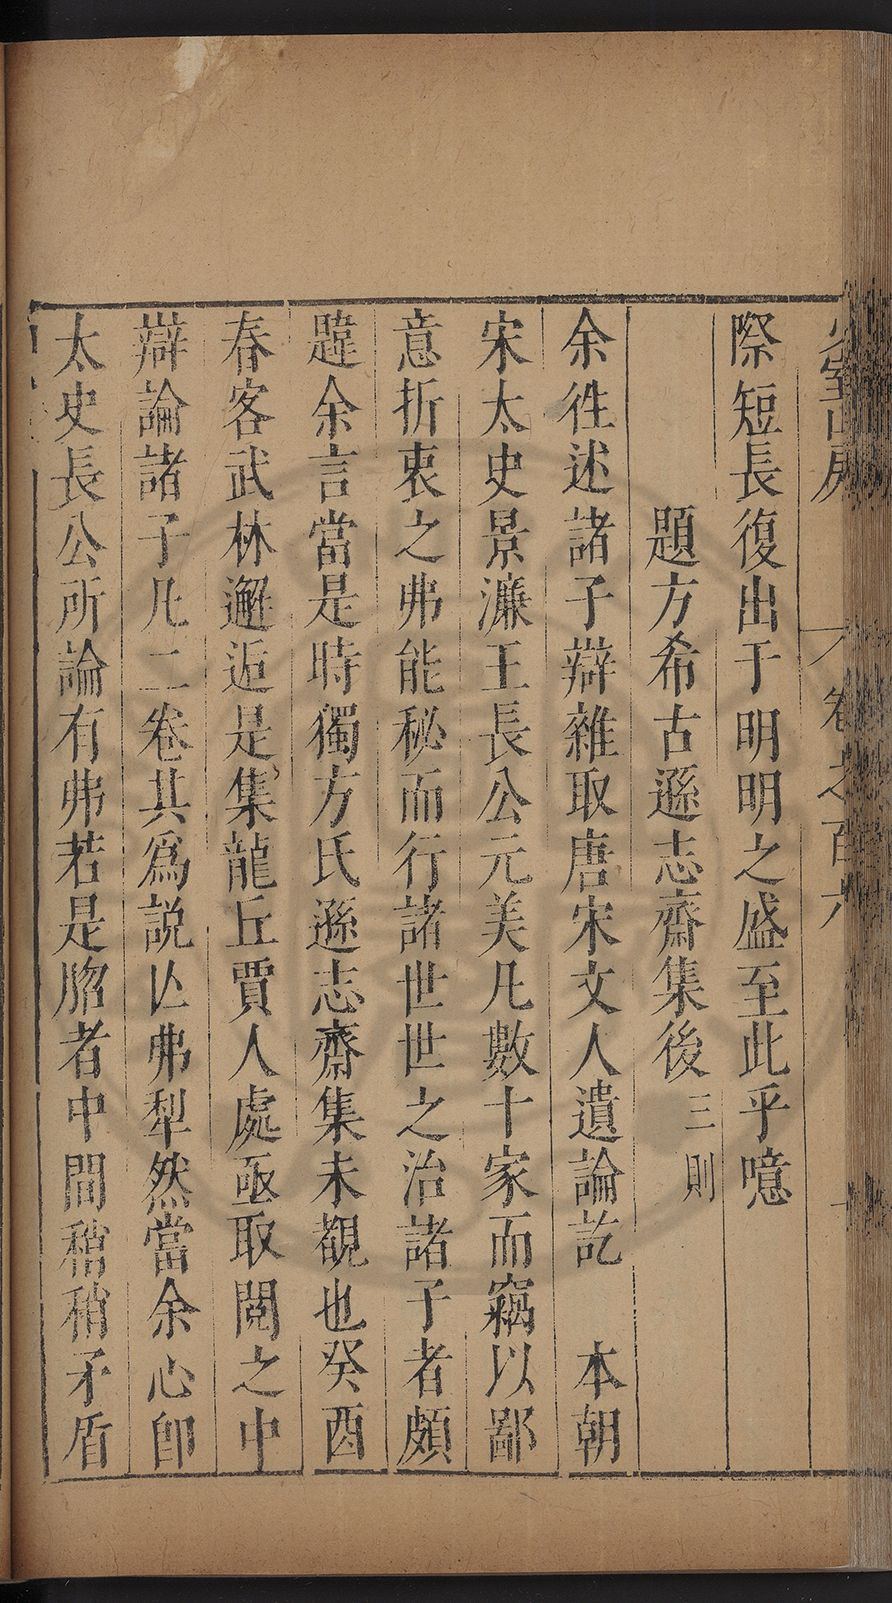 少室山房 卷之百六
際短長復出于明明之盛至此乎噫
題方希古遜志齋集後三則
余徃述諸子辯雜取唐宋文人遺論訖 本朝
宋太史景濂王長公元美凡數十家而竊以鄙
意折衷之弗能秘而行諸世世之治諸子者頗
韙余言當是時獨方氏遜志齋集未覩也癸酉
春客武林邂逅是集龍丘賈人處亟取閱之中
辯論諸子凡二卷其爲説亾弗犁然當余心卽
太史長公所論有弗若是脗者中間稍稍矛盾